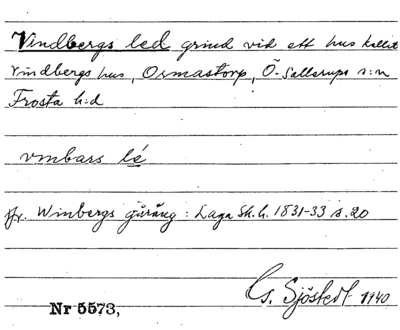 Vindbergs led grind vid ett hus kallat
Vindbergs hus, Ormastorp, Ö. Sallerups s:n
Frosta h:d
vmbars lé
jfr. Winbergs gåräng: Laga Sk. h. 1831-33 s. 20
G. Sjöstedt 1940
Nr 5573,